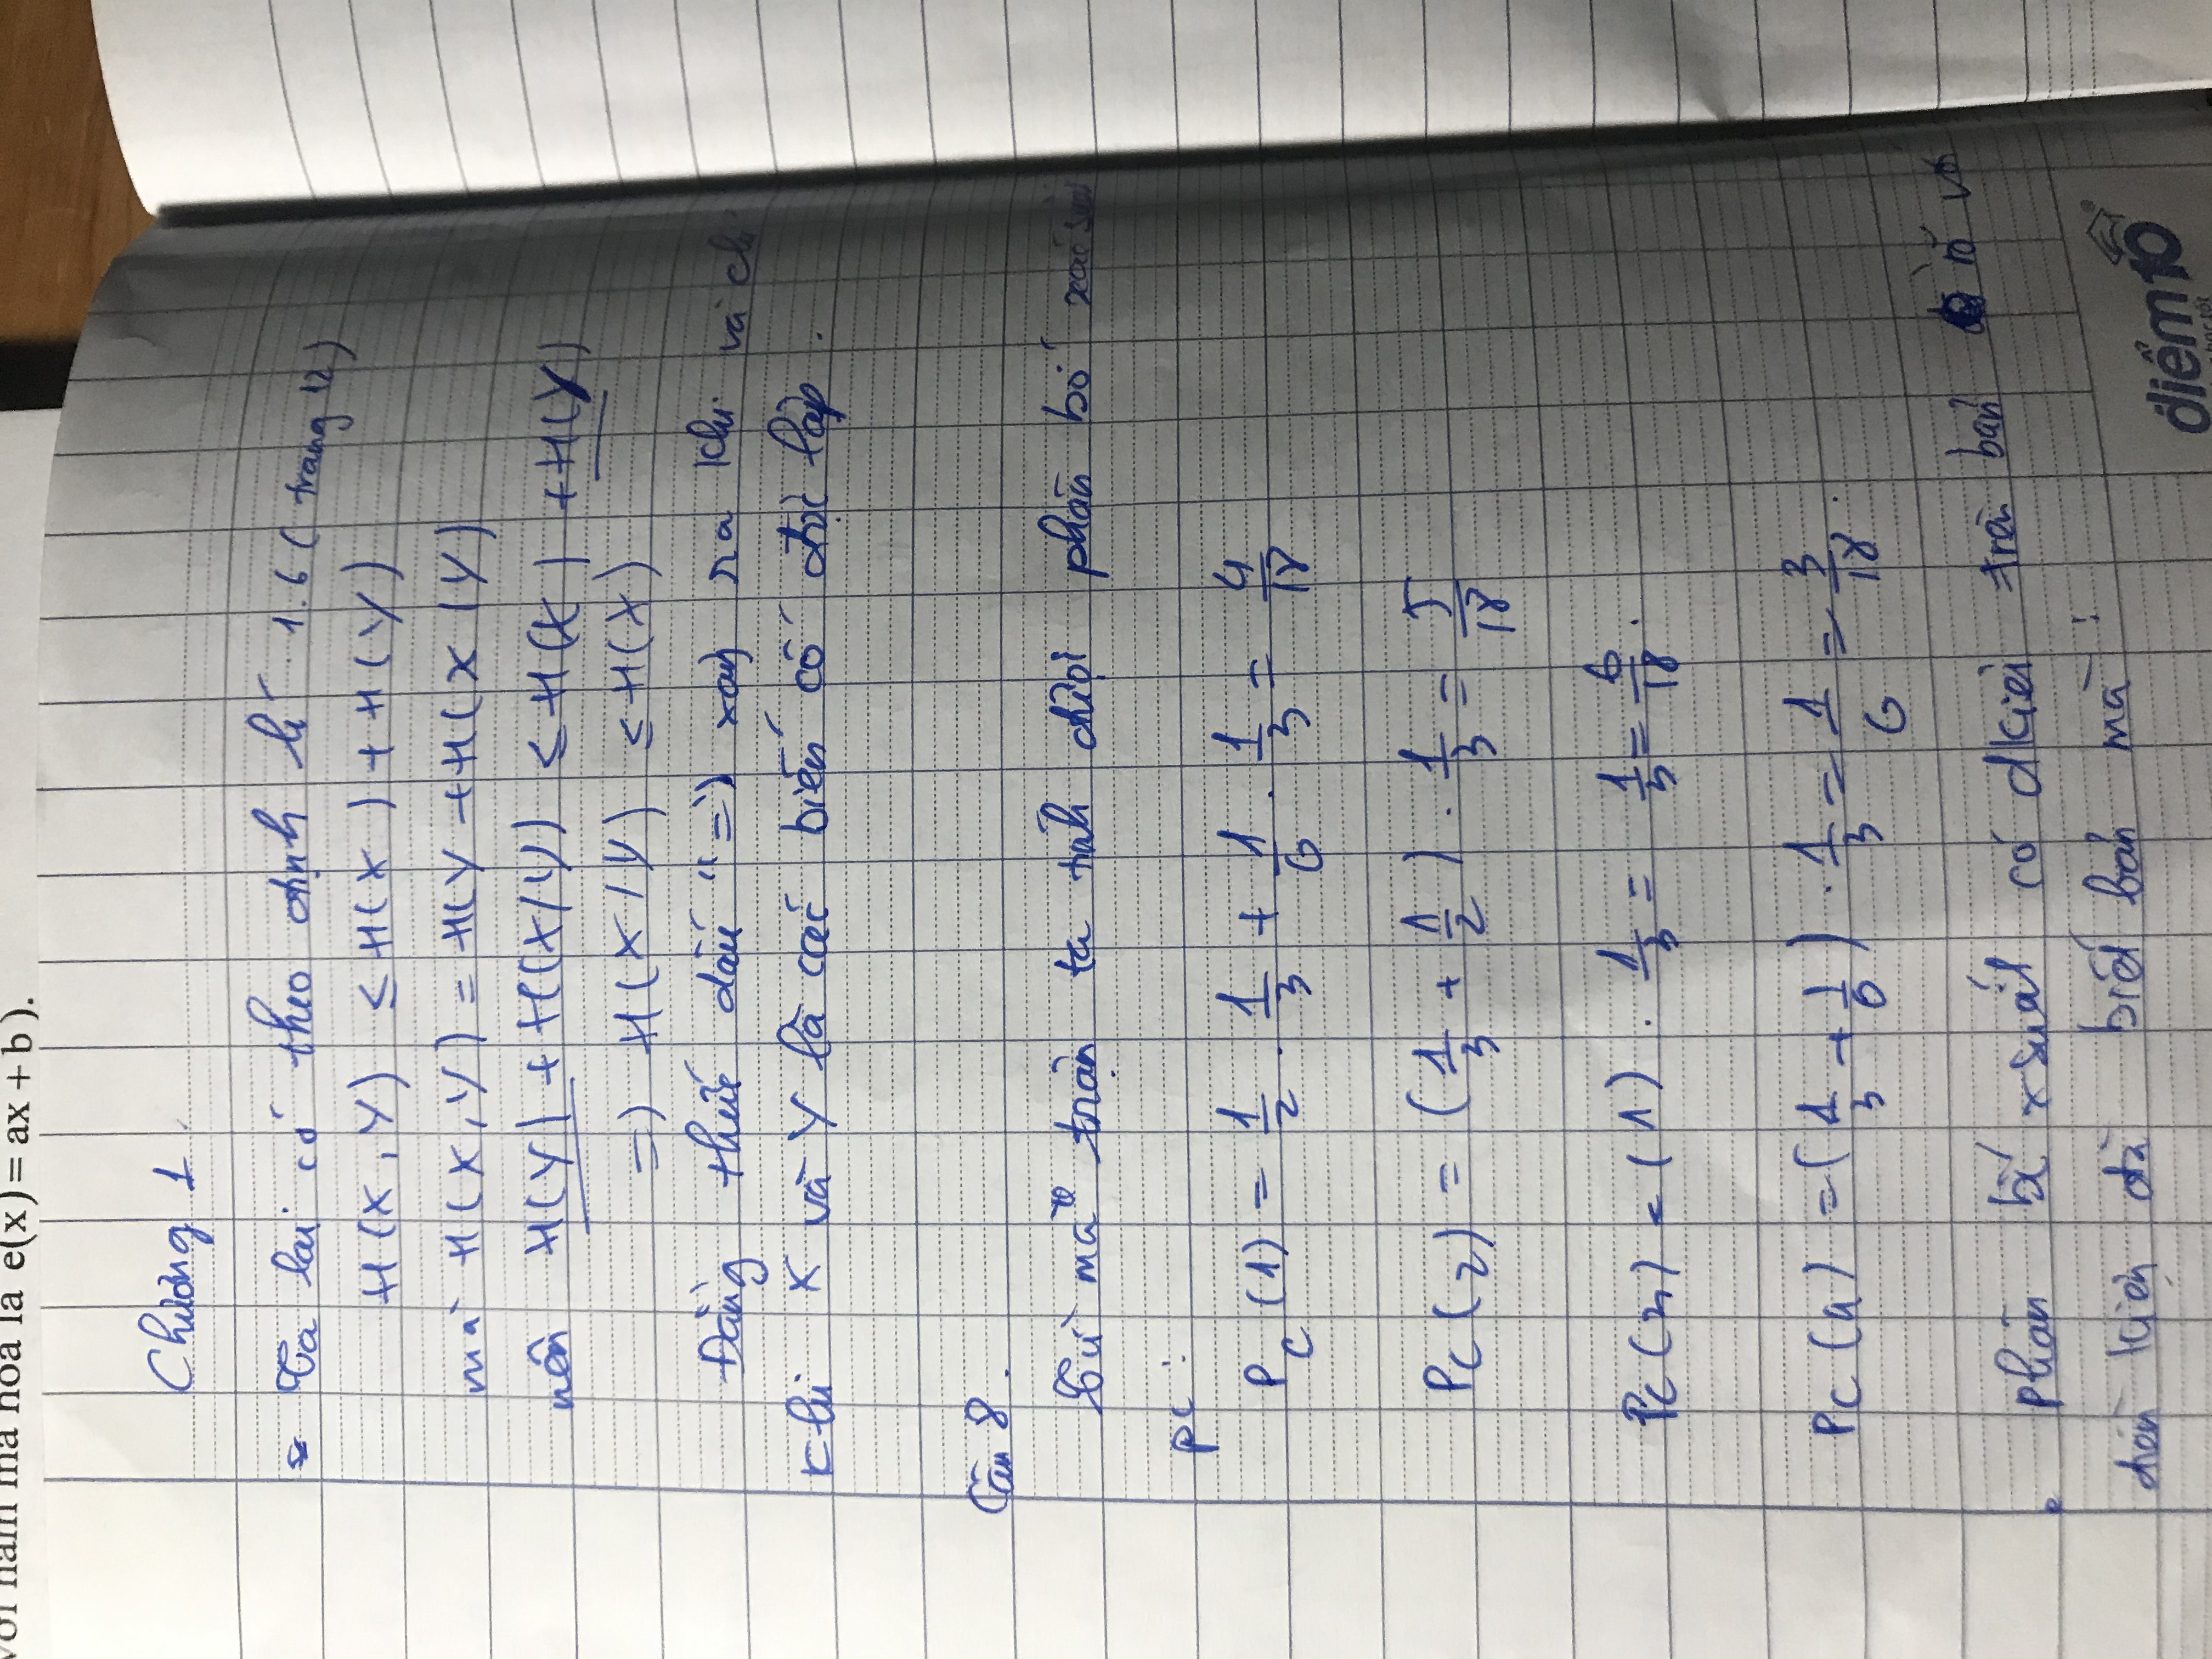 với hàm mã hóa là e(x) = ax + b ).
Chương 1
Ta lại có theo định lí 1.6 ( trang 12 )
H(X,Y) ≤ H(X) + H(Y)
mà H(X,Y) = H(Y + H(X/Y)
nên H(Y) + H(X/Y) ≤ H(X) + H(Y)
=> H(X/Y) ≤ H(X)
Đẳng thức dấu "=" xảy ra khi và chỉ
khi X và Y là các biến cố độc lập.
Câu 8.
Từ ma trận ta tính được phân bố xác suất
pc :
P_C(1) = 1/2 . 1/3 + 1/6 . 1/3 = 4/18
P_C(2) = (1/3 + 1/2) . 1/3 = 5/18
P_C(3) = (1) . 1/3 = 1/3 = 6/18.
P_C(4) = (1/3 + 1/6) . 1/3 = 1/6 = 3/18.
phân bố xsuất có đkiện trên bản rõ với
điều kiện đã biết bản mã :
điểm10